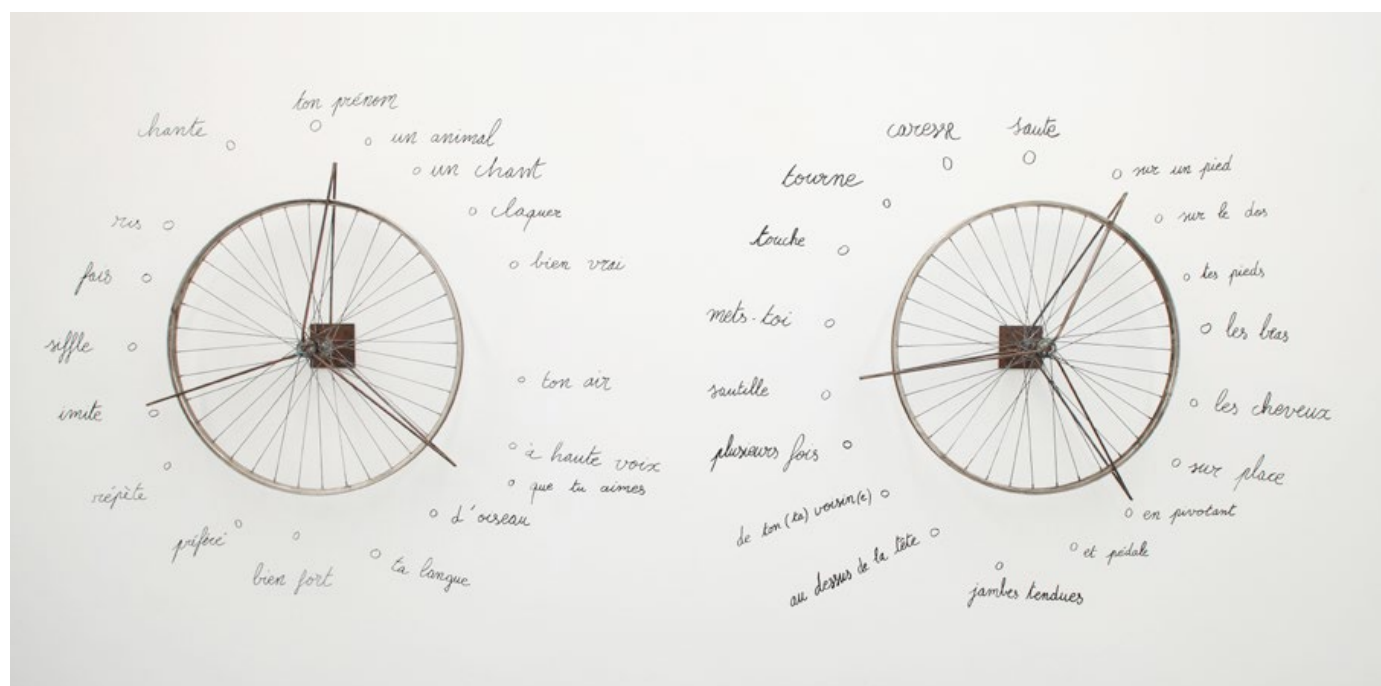 ton prénom
un animal
un chant
claquer
bien vrai
ton air
à haute voix
que tu aimes
d'oiseau
ta langue
bien fort
préféré
répète
imite
siffle
fais
ris
chante
saute
sur un pied
sur le dos
tes pieds
les bras
les cheveux
sur place
en pivotant
et pédale
jambes tendues
au dessus de la tête
de ton (ta) voisin(e)
plusieurs fois
sautille
mets-toi
touche
tourne
caresse